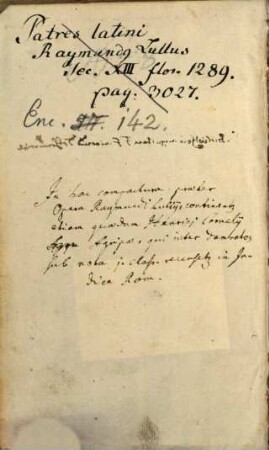 Patres latini
Raymundus Lullus
Sec. XIII flor. 1289.
pag. 3027.
Enc. 142.
In hac compactura præter
Opera Raymundi Lullij continentur
etiam quædam Henrici Cornelij
Agripæ, qui inter damnatos
sub nota 1 classis recensetur in In-
dice Rom.